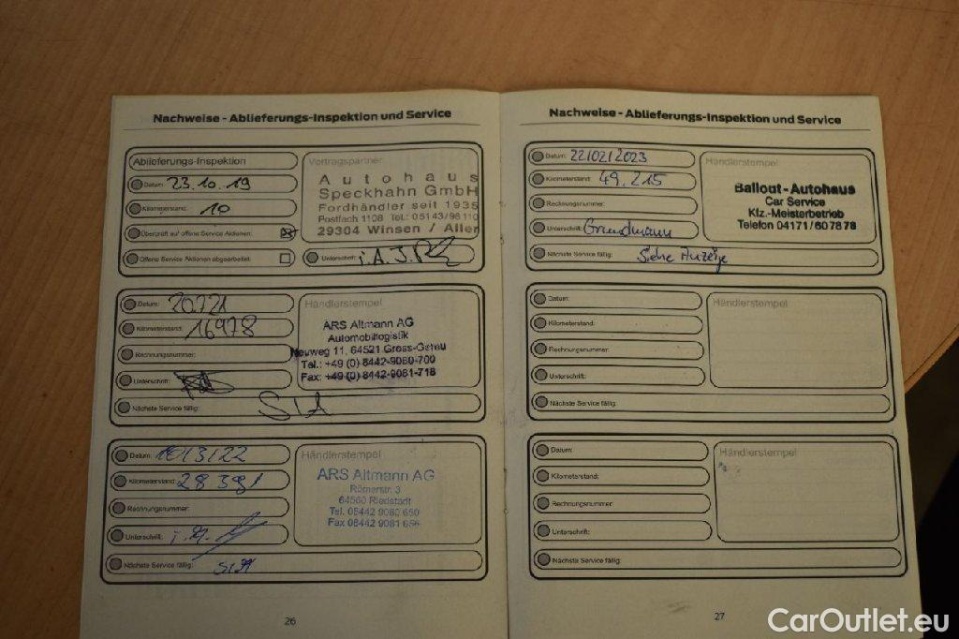 Nachweise - Ablieferungs-Inspektion und Service
Ablieferungs-Inspektion
Datum: 23.10.19
Kilometerstand: 10
Überprüft auf offene Service Aktionen:
Offene Service Aktionen abgearbeitet:
Vertragspartner
Autohaus
Speckhahn GmbH
Fordhändler seit 1935
Postfach 1108 Tel.: 05143/98110
29304 Winsen / Aller
Unterschrift: i.A.
Datum: 20.7.21
Kilometerstand: 16978
Rechnungsnummer:
Unterschrift:
Nächste Service fällig:
Händlerstempel
ARS Altmann AG
Automobillogistik
Neuweg 11, 64521 Gross-Gerau
Tel.: +49 (0) 8442-9080-700
Fax: +49 (0) 8442-9081-718
Datum: 10/3/22
Kilometerstand: 28 391
Rechnungsnummer:
Unterschrift: i.A.
Nächste Service fällig:
Händlerstempel
ARS Altmann AG
Römerstr. 3
64560 Riedstadt
Tel. 08442 9080 650
Fax 08442 9081 656
26
Nachweise - Ablieferungs-Inspektion und Service
Datum: 22/02/2023
Kilometerstand: 49.215
Rechnungsnummer:
Unterschrift: Grundmann
Nächste Service fällig: Siehe Anzeige
Händlerstempel
Ballout - Autohaus
Car Service
Kfz.-Meisterbetrieb
Telefon 04171/607878
Datum:
Kilometerstand:
Rechnungsnummer:
Unterschrift:
Nächste Service fällig:
Händlerstempel
Datum:
Kilometerstand:
Rechnungsnummer:
Unterschrift:
Nächste Service fällig:
Händlerstempel
27
CarOutlet.eu